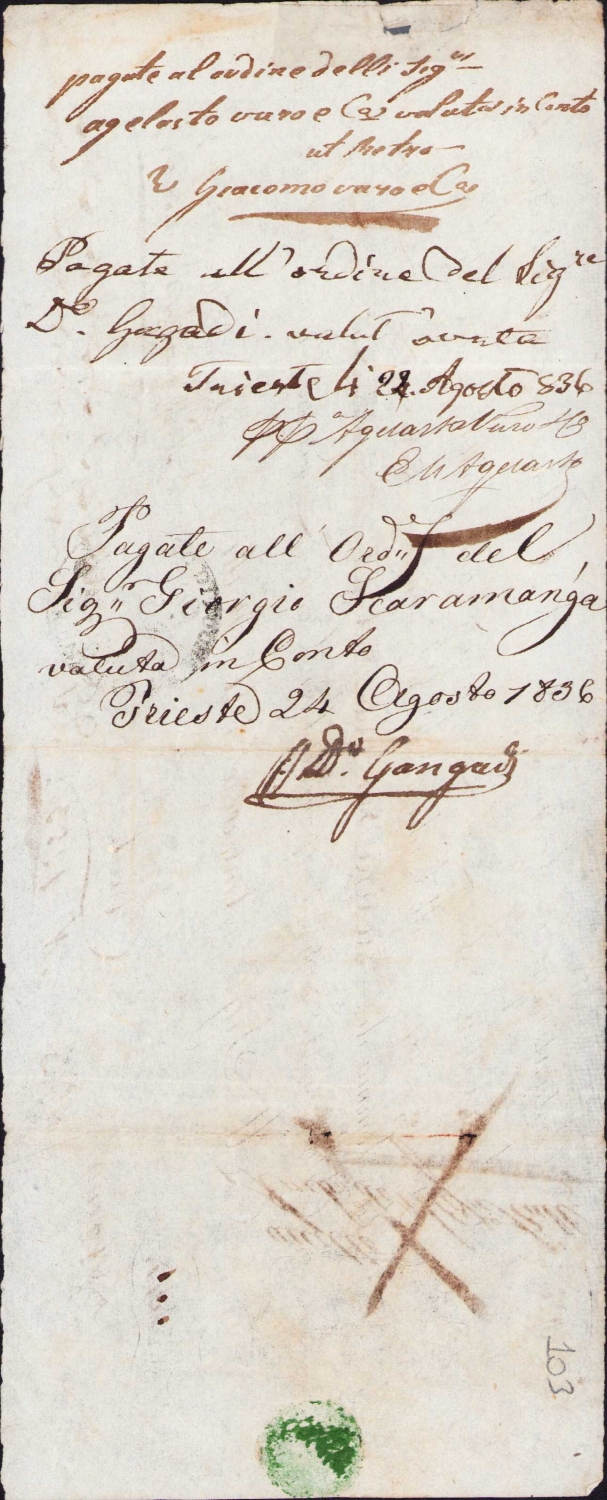 pagate al ordine delli Sigri
agelasto vuro e Co valuta in Conto
ut Retro
Giacomo vuro e Co
Pagate all'ordine del Sigre
De. Gazadi. valut' avuta
Trieste li 22. Agosto 836
PP Agelasto Vuro & Co
E M Agelasto
Pagate all Orde del
Sigr Giorgio Scaramanga
valuta in Conto
Trieste 24 Agosto 1836
De. Gangadi
103